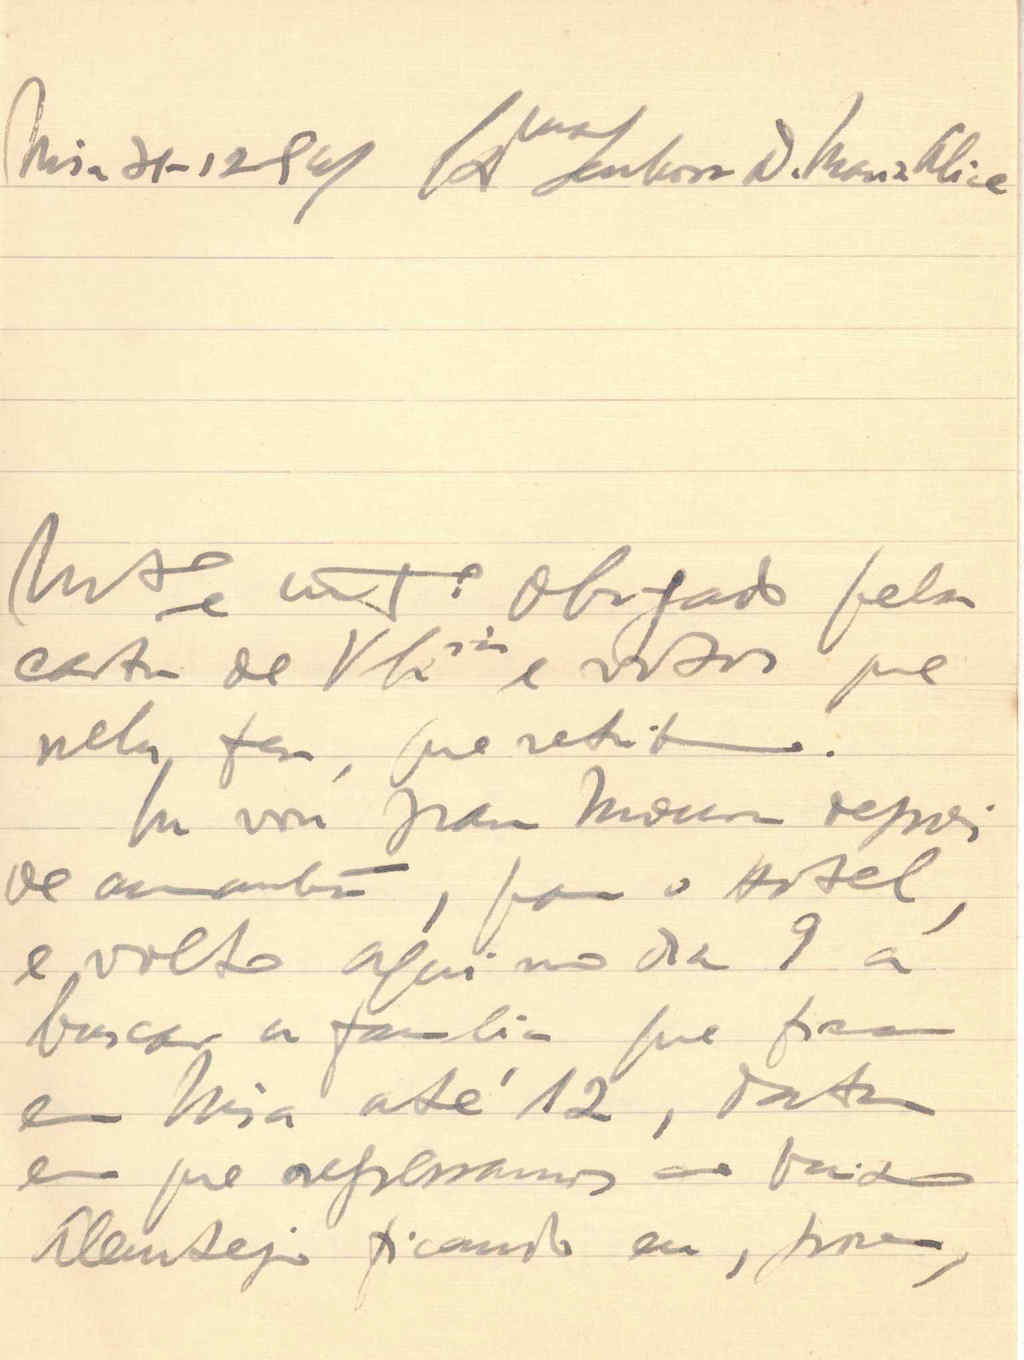 Nisa 31-12-84 Exma Senhora D. Maria Alice
e mt.º obrigado pela
carta de V. Ex.cia e votos que
nela faz, que retribuo.
Eu vou para Moura depois
de amanhã, para o Hotel,
e volto aqui no dia 9 a
buscar a família que fica
em Nisa até 12, data
em que regressamos ao baixo
Alentejo ficando eu, porem,